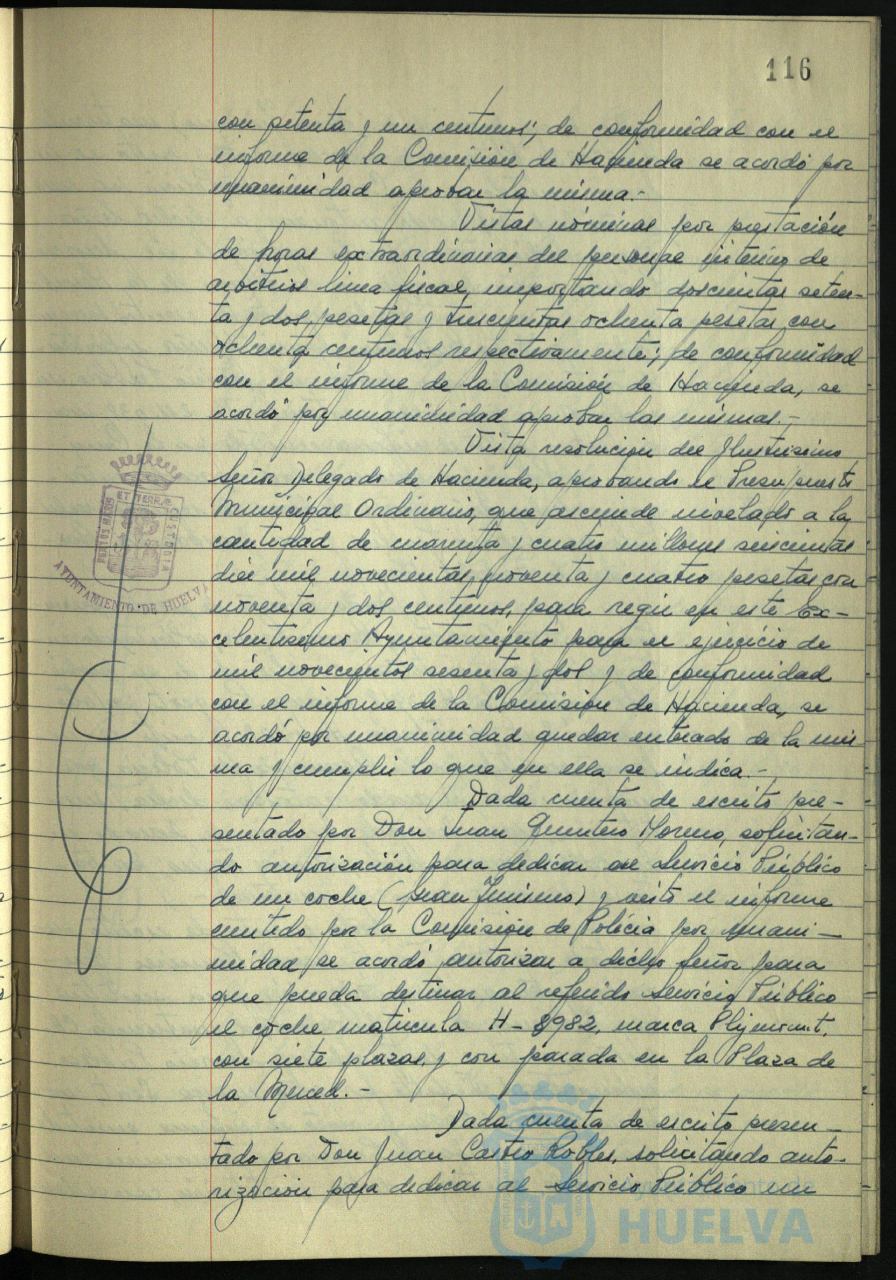 116
con setenta y un centimos; de conformidad con el
informe de la Comisión de Hacienda se acordó por
unanimidad aprobar la misma.-
Vistas nóminas por prestación
de horas extraordinarias del personal interino de
arbitrios linea fiscal, importando doscientas seten-
ta y dos pesetas y trescientas ochenta pesetas con
ochenta centimos respectivamente; de conformidad
con el informe de la Comisión de Hacienda, se
acordó por unanimidad aprobar las mismas.-
Vista resolución del Ilustrisimo
Señor Delegado de Hacienda, aprobando el Presupuesto
Municipal Ordinario, que asciende nivelado a la
cantidad de cuarenta y cuatro millones seiscientas
diez mil novecientas noventa y cuatro pesetas con
noventa y dos centimos, para regir en este Ex-
celentisimo Ayuntamiento para el ejercicio de
mil novecientos sesenta y dos y de conformidad
con el informe de la Comisión de Hacienda, se
acordó por unanimidad quedar enterado de la mis-
ma y cumplir lo que en ella se indica.-
Dada cuenta de escrito pre-
sentado por Don Juan Quintero Moreno, solicitan-
do autorización para dedicar al Servicio Público
de un coche (gran Turismo) y visto el informe
emitido por la Comisión de Policia por unani-
midad se acordó autorizar a dicho Señor para
que pueda destinar al referido Servicio Público
el coche matricula H-8982, marca Plijmount,
con siete plazas, y con parada en la Plaza de
la Merced.-
Dada cuenta de escrito presen-
tado por Don Juan Castro Robles, solicitando auto-
rización para dedicar al Servicio Público un
PORTUS MARIS ET TERRAE CUSTODIA
AYUNTAMIENTO DE HUELVA
HUELVA